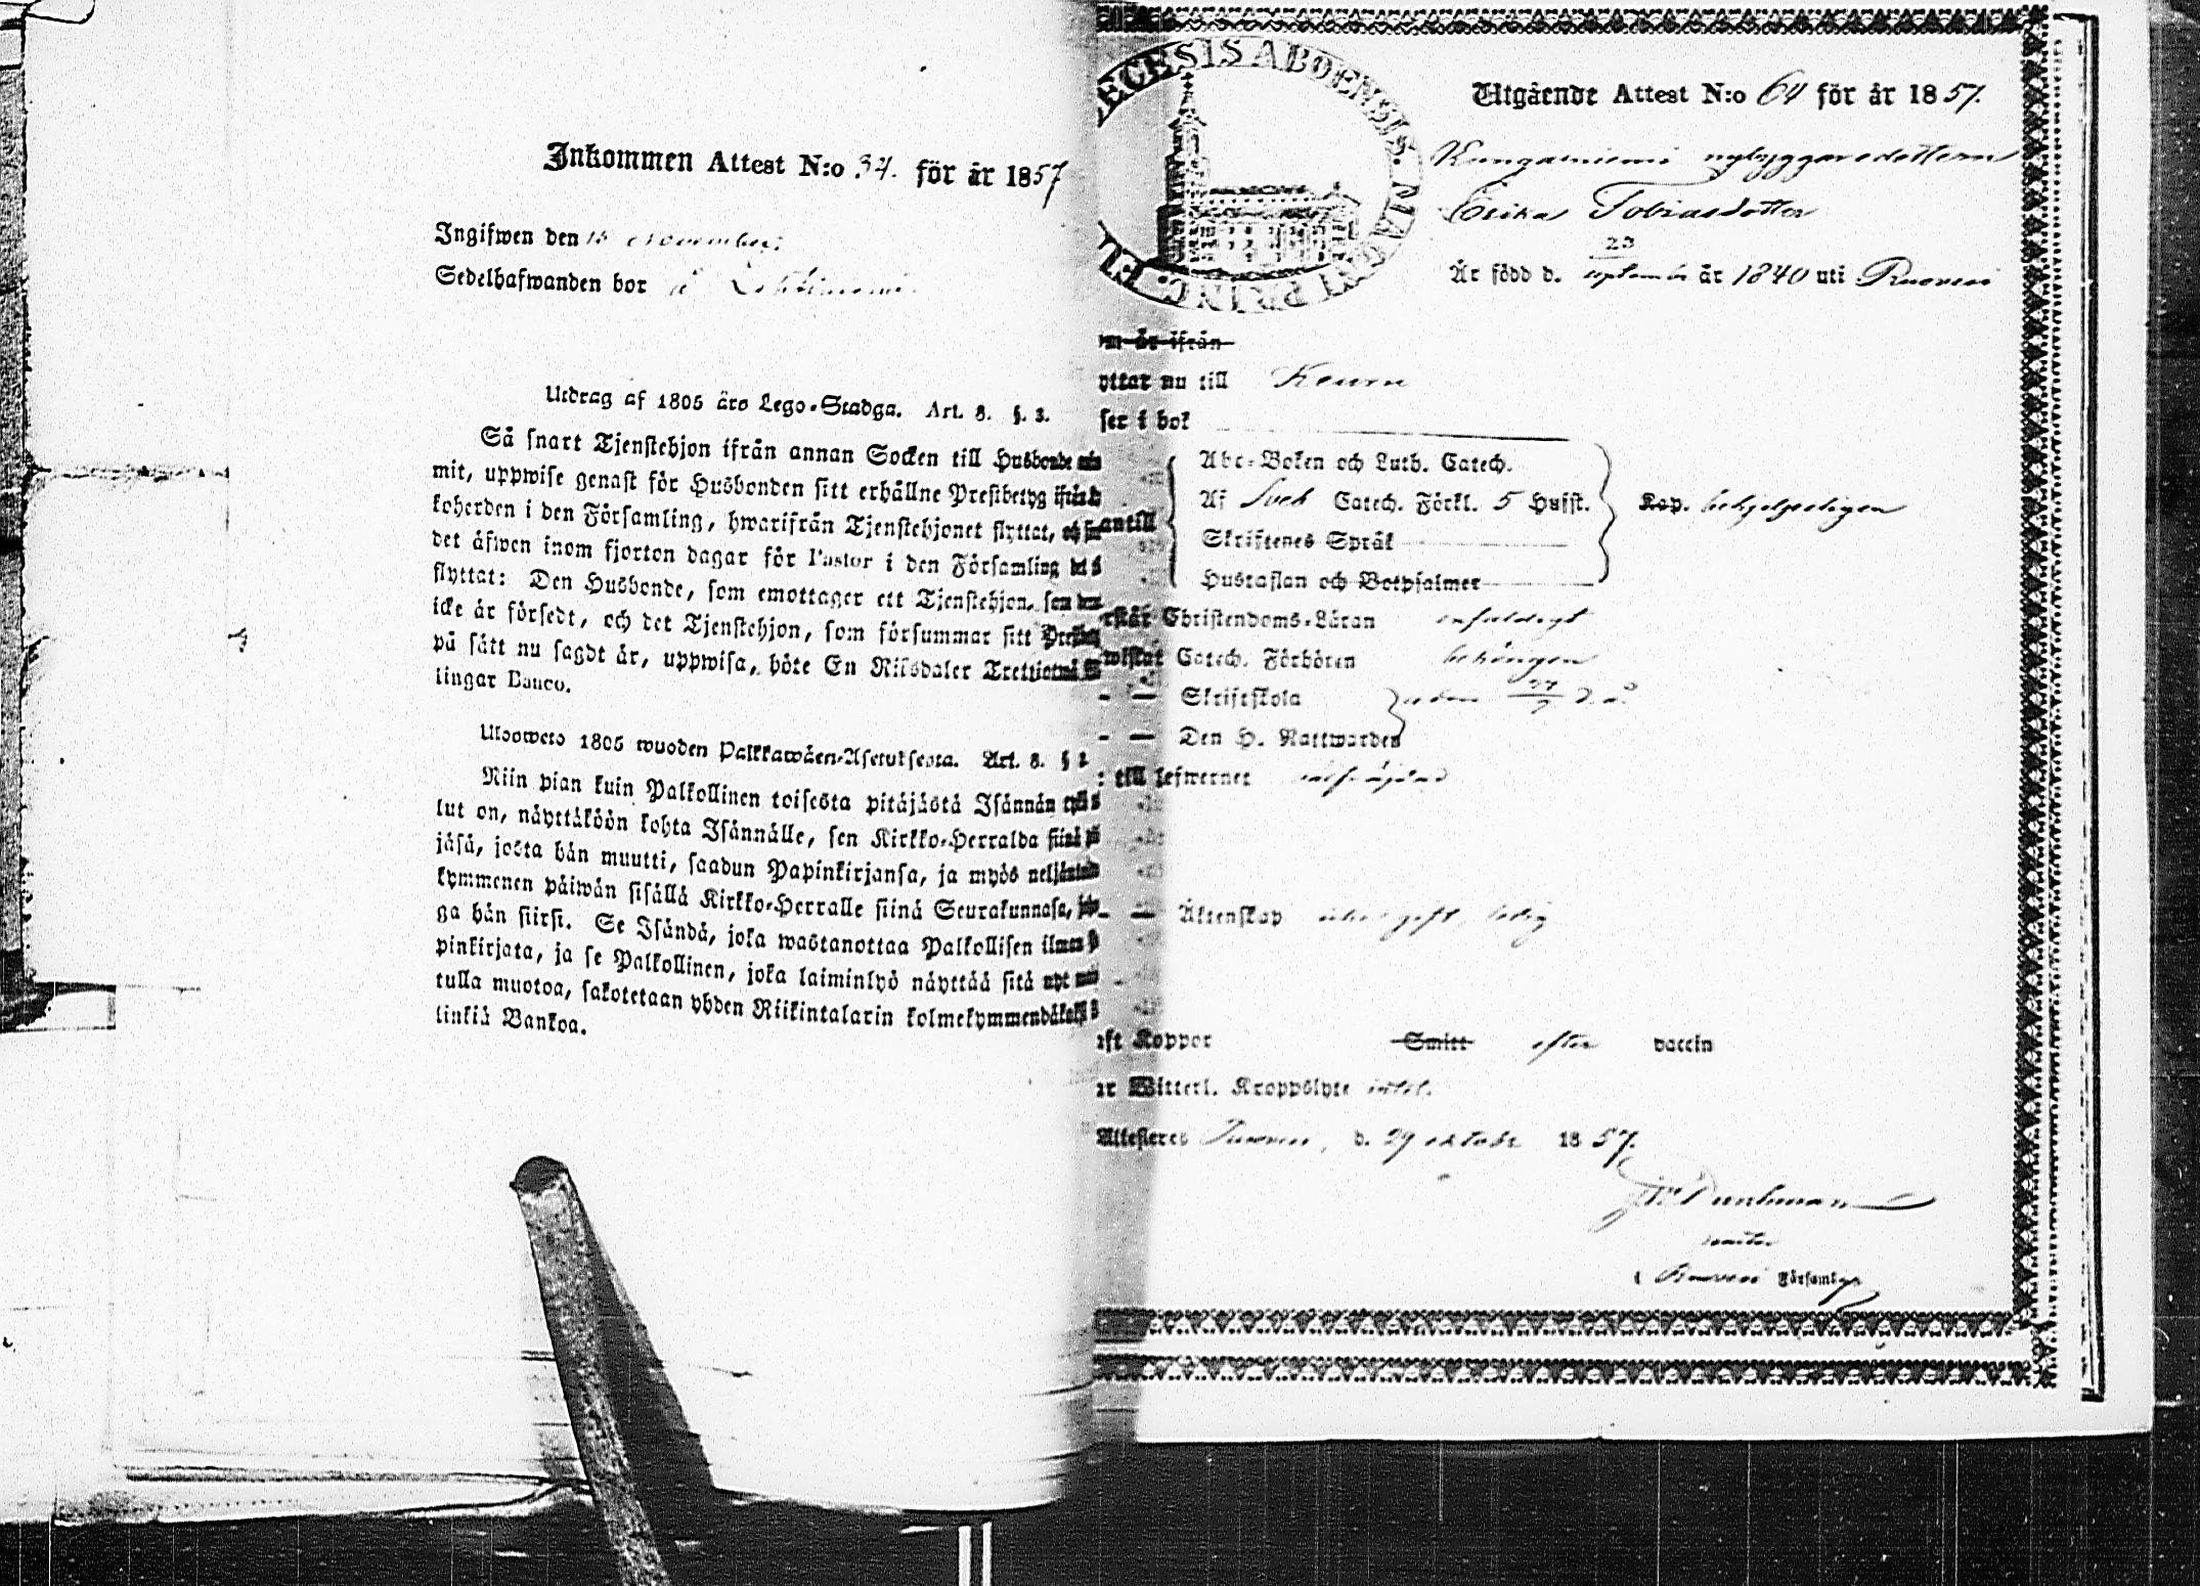 Inkommen Attest N:o 34. för år 1857
Ingifwen den 15 November.
Sedelhafwanden bor å
Utdrag af 1805 års Lego-Stadga. Art. 8. §. 3.
Så snart Tjenstehjon ifrån annan Socken till Husbonde
mit, uppwise genast för Husbonden sitt erhållne Prestbetyg ifrån
koherden i den Församling, hwarifrån Tjenstehjonet flyttat, och
det äfwen inom fjorton dagar för Pastor i den Församling
flyttat: Den Husbonde, som emottager ett Tjenstehjon, som
icke är försedt, och det Tjenstehjon, som försummar sitt
på sätt nu sagdt är, uppwisa, böte En Riksdaler Trettiotwå
lingar Banco.
Uloswets 1805 wuoden Palkkawäen-Asetuksesta. Art. 8. §
Niin pian kuin Palkollinen toisesta pitäjästä Isännän
lut on, näyttäköön kohta Isännälle, sen Kirkko-Herralda siinä
jäsä, josta hän muutti, saadun Papinkirjansa, ja myös
kymmenen päiwän sisällä Kirkko-Herralle siinä Seurakunnasa,
ga hän siirsi. Se Isändä, joka wastanottaa Palkollisen ilman
pinkirjata, ja se Palkollinen, joka laiminlyö näyttää sitä nyt
tulla muotoa, sakotetaan yhden Riikintalarin
linkiä Bankoa.
ECESIS ABOENSIS. MAGNI PRINC:
Utgående Attest N:o 64 för år 1857.
nybyggaredottern
Erika Tobiasdotter
23
Är född d. september år 1840 uti Ruovesi
m är ifrån
yttar nu till Keuru
ser i bok
Abc-Boken och Luth. Catech.
Af Sveb Catech. Förkl. 5 Hufst. Kap. behjelpeligen
antill
Skriftenes Språk
Hustaflan och Botpsalmer
rstår Christendoms-Läran enfaldigt
wistat Catech. Förhören behörigen
— Skriftskola
— Den H. Nattwarden
: till lefwernet
— Äktenskap ledig
aft Koppor Smitt efter vaccin
ar Witterl. Kroppslyte intet.
Attesteres Ruovesi, d. 29 oktober 1857.
i Ruovesi Församling